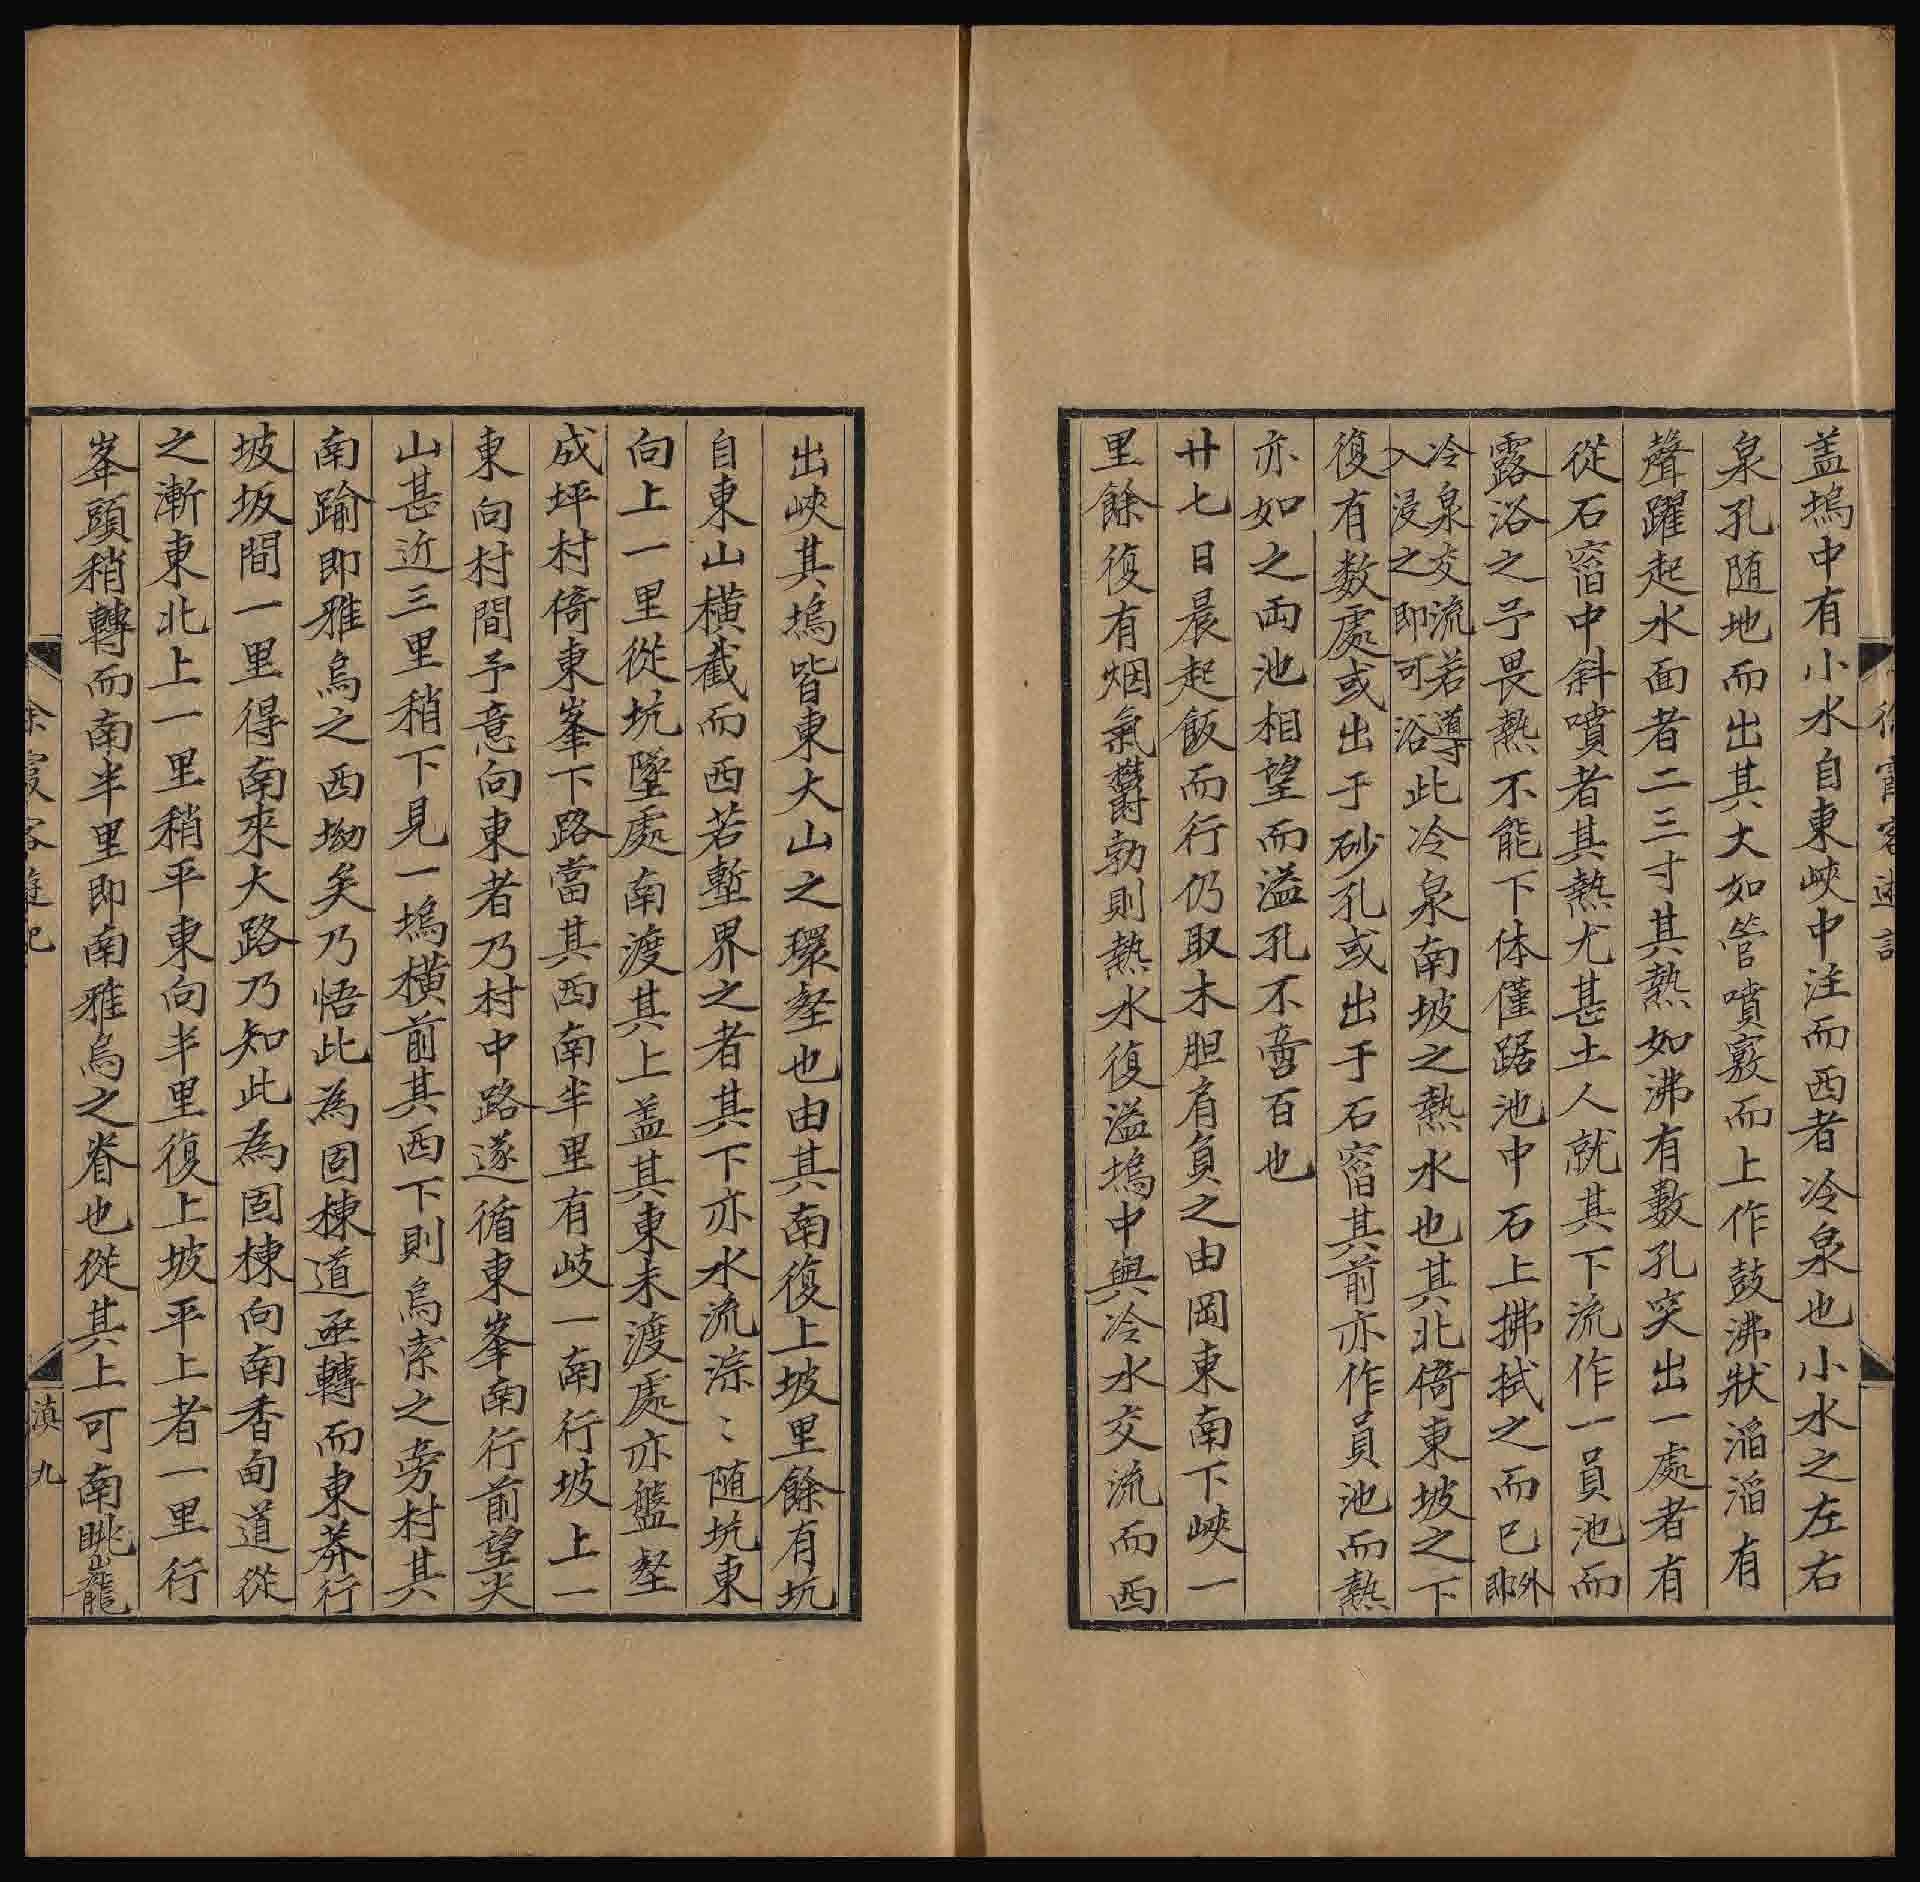 徐霞客遊記
盖塢中有小水自東峽中注而西者冷泉也小水之左右
泉孔随地而出其大如管噴竅而上作鼓沸狀滔滔有
聲躍起水面者二三寸其熱如沸有數孔突出一處者有
從石窞中斜噴者其熱尤甚土人就其下流作一員池而
露浴之予畏熱不能下体僅踞池中石上拂拭之而已外即
冷泉交流若導入浸之即可浴此冷泉南坡之熱水也其北倚東坡之下
復有数處或出于砂孔或出于石窞其前亦作員池而熱
亦如之兩池相望而溢孔不啻百也
廿七日晨起飯而行仍取木胆肩負之由岡東南下峽一
里餘復有烟氣欝勃則熱水復溢塢中與冷水交流而西
出峽其塢皆東大山之環壑也由其南復上坡里餘有坑
自東山橫截而西若塹界之者其下亦水流淙〻随坑東
向上一里從坑墜處南渡其上盖其東未渡處亦盤壑
成坪村倚東峯下路當其西南半里有岐一南行坡上一
東向村間予意向東者乃村中路遂循東峯南行前望尖
山甚近三里稍下見一塢橫前其西下則烏索之旁村其
南踰即雅烏之西坳矣乃悟此為固棟道亟轉而東莽行
坡坂間一里得南來大路乃知此為固棟向南香甸道從
之漸東北上一里稍平東向半里復上坡平上者一里行
峯頭稍轉而南半里即南雅烏之脊也從其上可南眺巃
徐霞客遊記
滇九